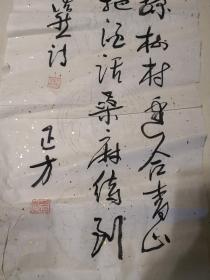 绿树村边合青山
把酒话桑麻待到
然诗
正方